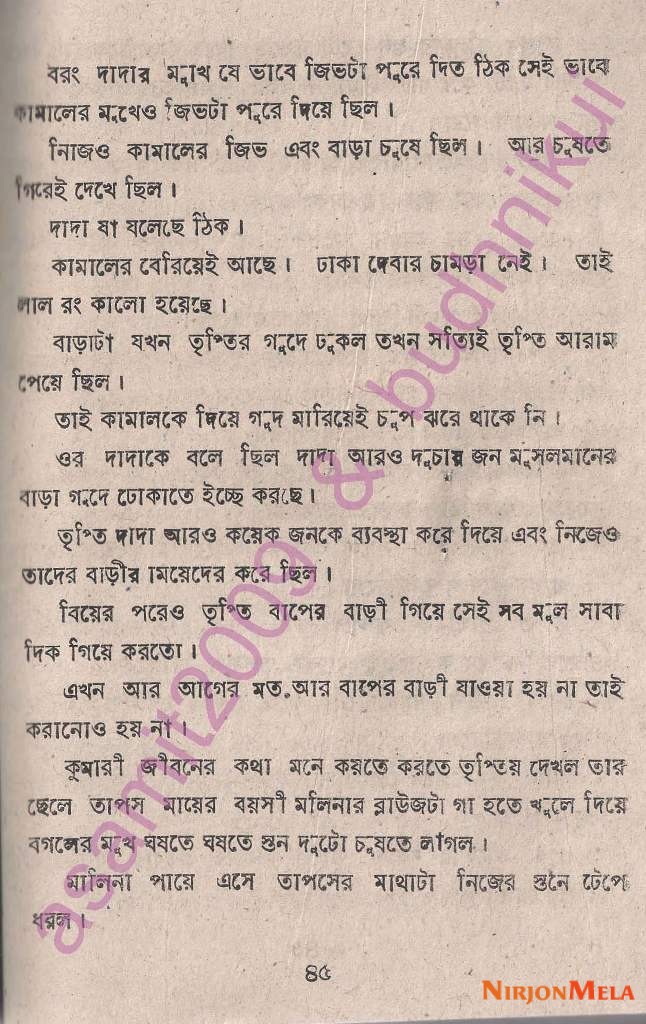 বরং দাদার মুখে যে ভাবে জিভটা পুরে দিত ঠিক সেই ভাবে
কামালের মুখেও জিভটা পুরে দিয়ে ছিল।
নিজেও কামালের জিভ এবং বাড়া চুষে ছিল। আর চুষতে
গিয়েই দেখে ছিল।
দাদা যা বলেছে ঠিক।
কামালের বেরিয়েই আছে। ঢাকা দেবার চামড়া নেই। তাই
লাল রং কালো হয়েছে।
বাড়াটা যখন তৃপ্তির গুদে ঢুকল তখন সত্যিই তৃপ্তি আরাম
পেয়ে ছিল।
তাই কামালকে দিয়ে গুদ মারিয়েই চুপ ঝরে থাকে নি।
ওর দাদাকে বলে ছিল দাদা আরও দুচার জন মুসলমানের
বাড়া গুদে ঢোকাতে ইচ্ছে করছে।
তৃপ্তি দাদা আরও কয়েক জনকে ব্যবস্থা করে দিয়ে এবং নিজেও
তাদের বাড়ীর মিয়েদের করে ছিল।
বিয়ের পরেও তৃপ্তি বাপের বাড়ী গিয়ে সেই সব মুল সাবা
দিক গিয়ে করতো।
এখন আর আগের মত.আর বাপের বাড়ী যাওয়া হয় না তাই
করানোও হয় না।
কুমারী জীবনের কথা মনে কয়তে করতে তৃপ্তিয় দেখল তার
ছেলে তাপস মায়ের বয়সী মলিনার ব্লাউজটা গা হতে খুলে দিয়ে
বগলের মুখ ঘষতে ঘষতে স্তন দুটো চুষতে লাগল।
মালিনা পায়ে এসে তাপসের মাথাটা নিজের স্তনে টেপে
ধরল।
৪৫
asamit2009 & budhnikul
NIRJONMELA